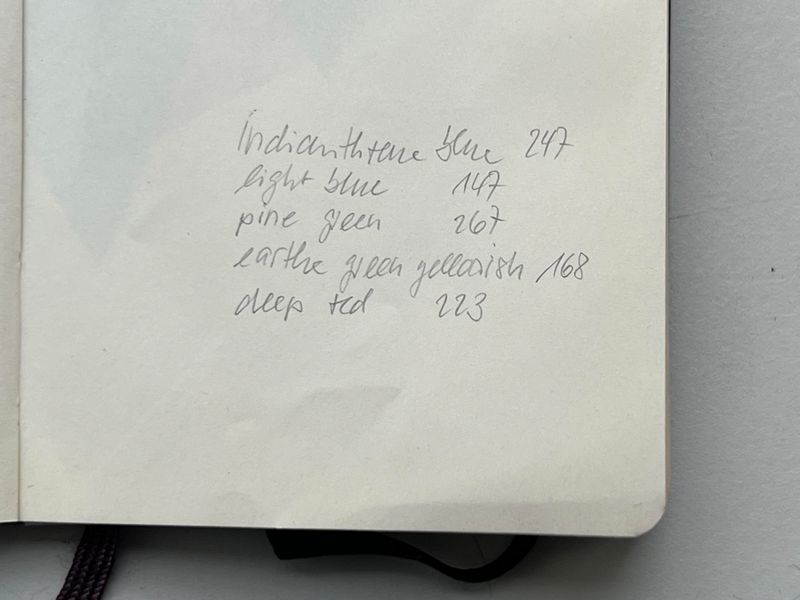 Indianthrene blue 247
light blue 147
pine green 267
earthe green yellowish 168
deep red 223